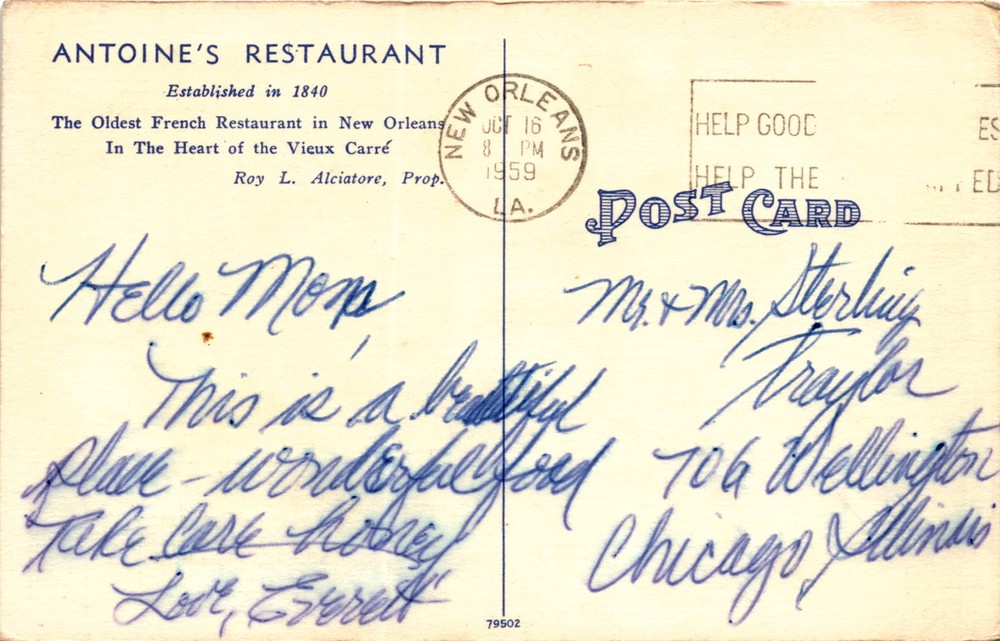 ANTOINE'S RESTAURANT
Established in 1840
The Oldest French Restaurant in New Orleans
In The Heart of the Vieux Carré
Roy L. Alciatore, Prop.
NEW ORLEANS
OCT 16
8 PM
1959
LA.
HELP GOOD
HELP THE
POST CARD
Hello Mom,
This is a beautiful
place - wonderful food
Take care honey
Love, Everett
Mr. & Mrs. Sterling
Traylor
706 Wellington
Chicago, Illinois
79502